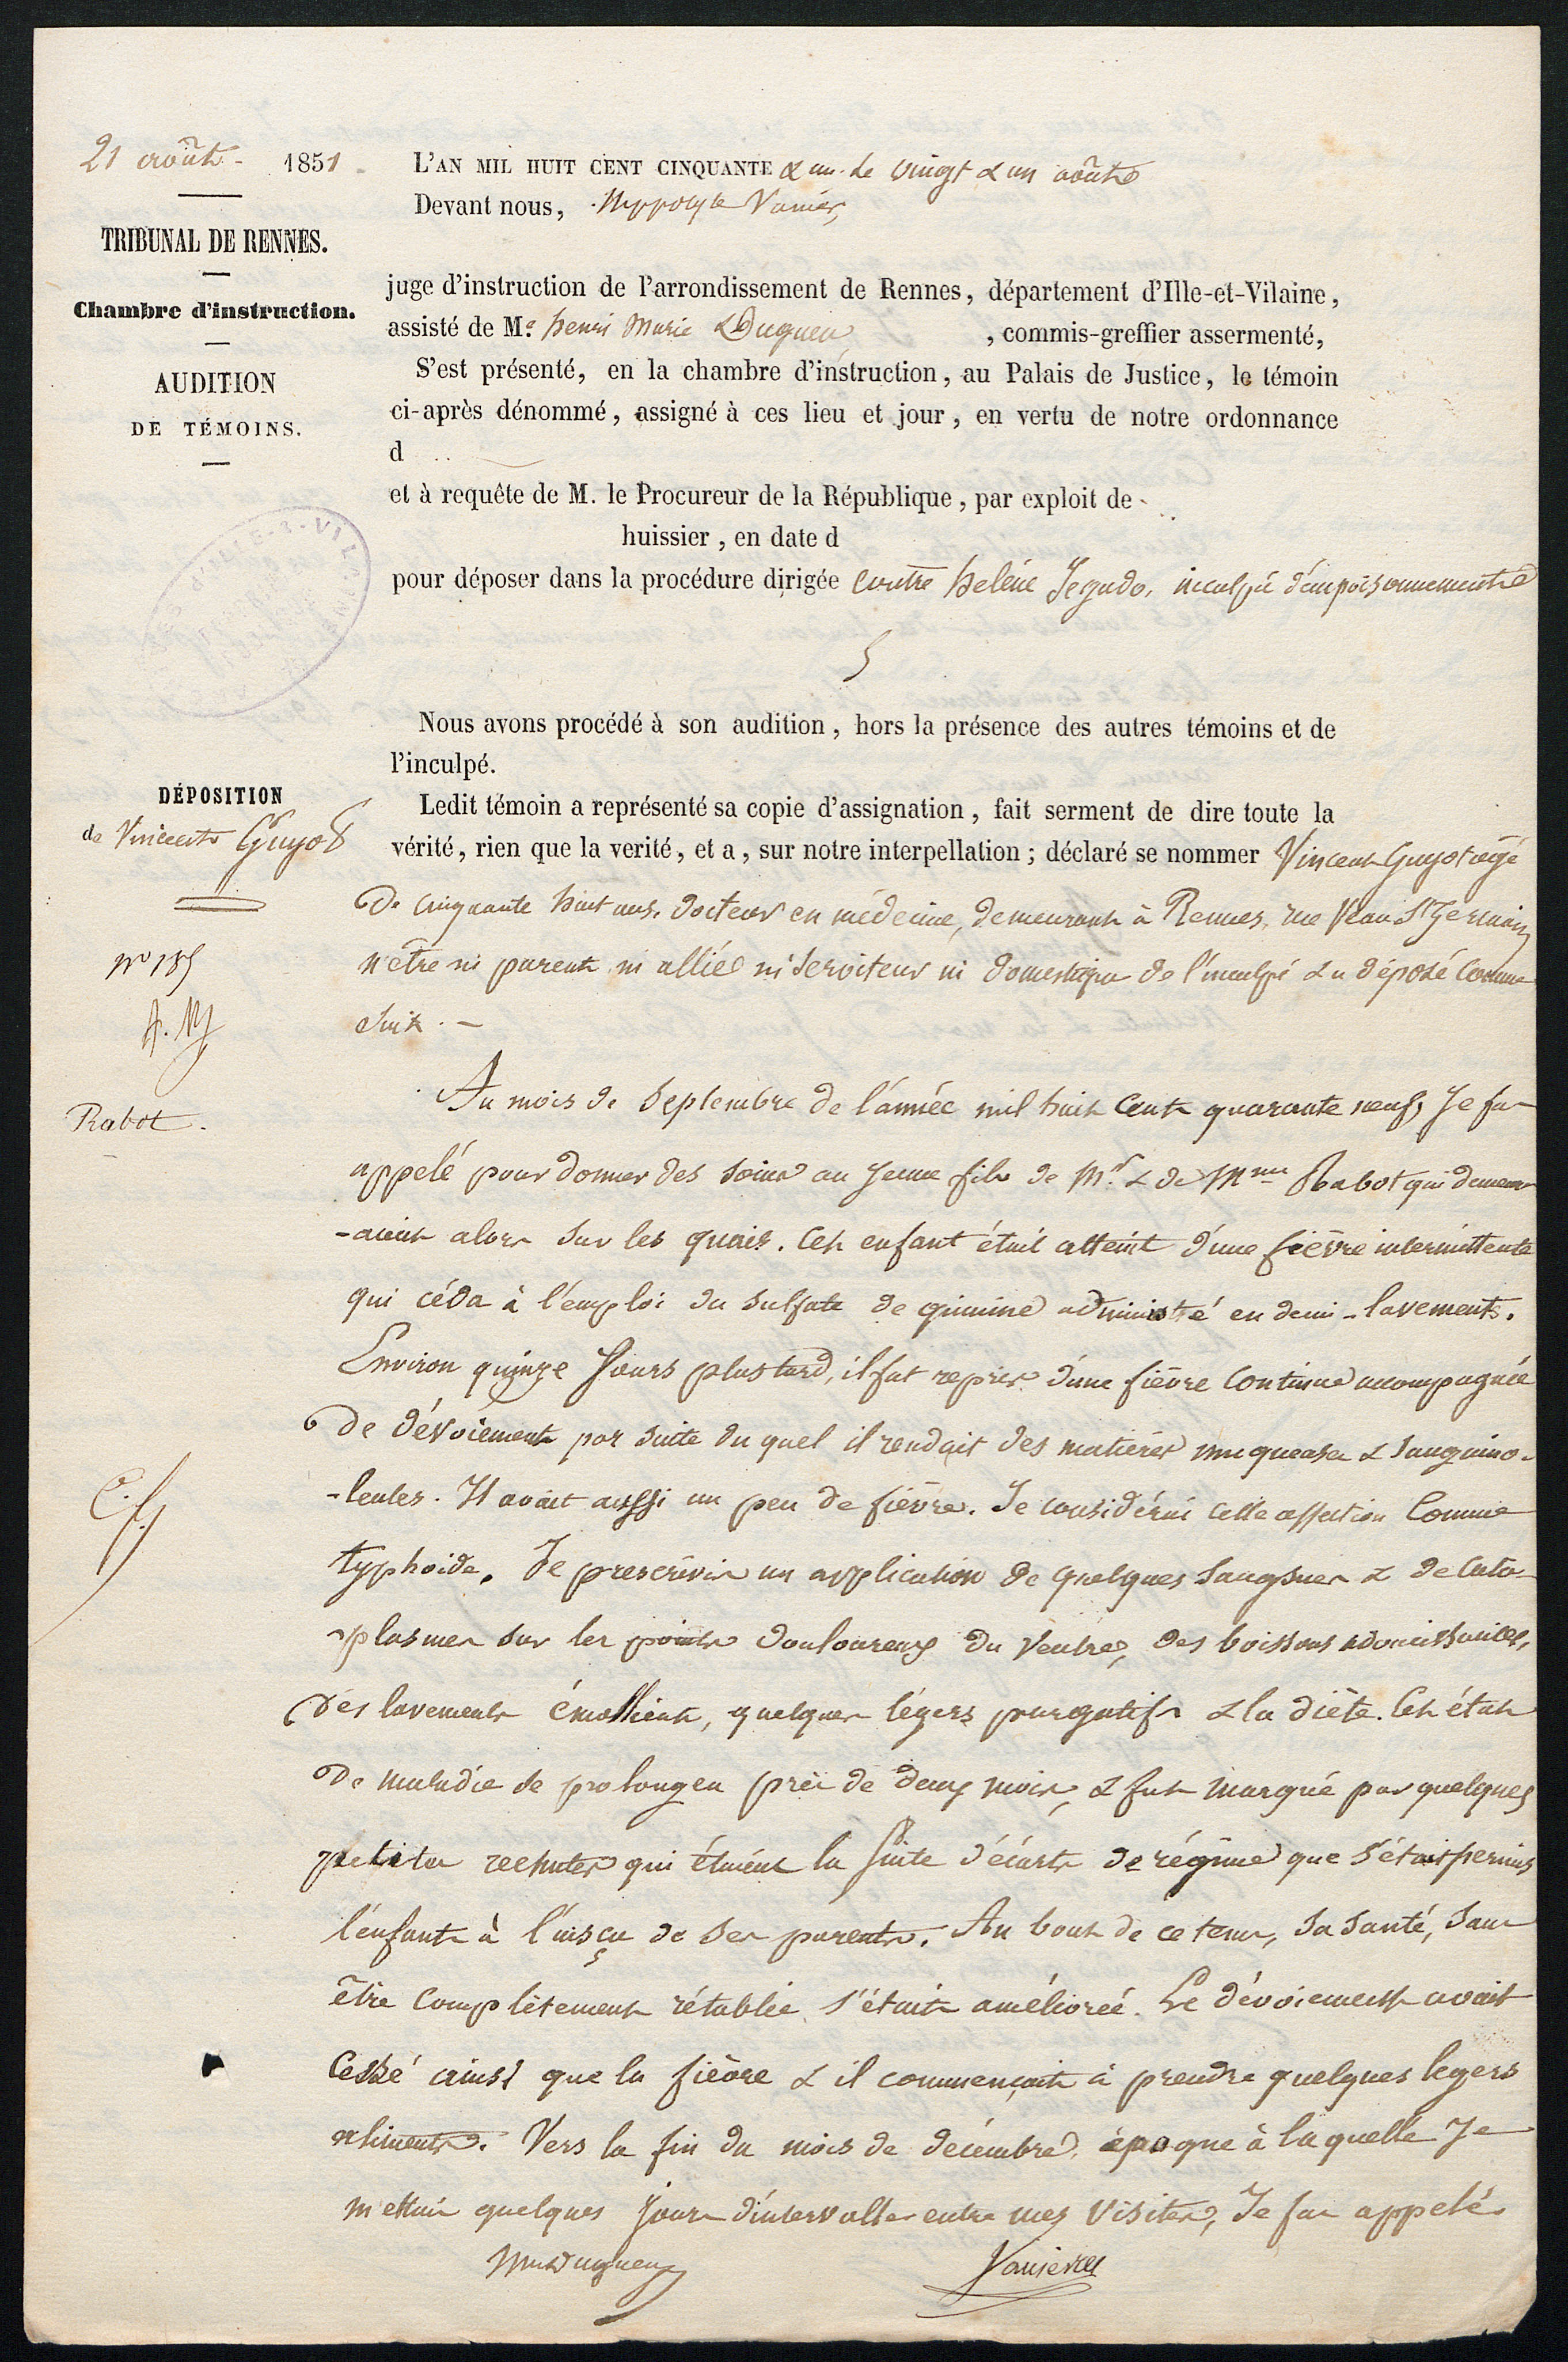 21 août 1851
TRIBUNAL DE RENNES.
Chambre d'instruction.
AUDITION
DE TÉMOINS.
L'AN MIL HUIT CENT CINQUANTE & un le vingt & un août
Devant nous, Hippolyte Vanier,
juge d'instruction de l'arrondissement de Rennes, département d'Ille-et-Vilaine,
assisté de Me. henri Marie , commis-greffier assermenté,
S'est présenté, en la chambre d'instruction, au Palais de Justice, le témoin
ci-après dénommé, assigné à ces lieu et jour, en vertu de notre ordonnance
d
et à requête de M. le Procureur de la République, par exploit de
huissier, en date d
pour déposer dans la procédure dirigée contre heléne Jegado, inculpée d'empoisonnement
Nous avons procédé à son audition, hors la présence des autres témoins et de
l'inculpé.
DÉPOSITION
de Vincent Guyot
no 185
Rabot.
Ledit témoin a représenté sa copie d'assignation, fait serment de dire toute la
vérité, rien que la verité, et a, sur notre interpellation; déclaré se nommer Vincent Guyot agé
De cinquante huit ans, docteur en médecine, demeurant à Rennes, rue Veau St Germain
n'être ni parent ni allié ni serviteur ni domestique de l'inculpé & a déposé comme
suit. -
Au mois de Septembre de l'année mil huit cent quarante neuf, Je fus
appelé pour donner des soins au jeune fils de Mr. & de Mme Rabot qui demeur
-aient alors sur les quais. Cet enfant était atteint d'une fièvre intermittente
qui céda à l'emploi du sulfate de quinine administré en demi-lavements.
Environ quinze Jours plus tard, il fut repris d'une fièvre continue accompagnée
De dévoiement par suite du quel il rendait des matières muqueuses & sanguino-
-lentes. Il avait aussi un peu de fièvre. Je considérai cette affection comme
typhoide. Je prescrivis un application de quelques sangsues & de cata-
-plasmes sur les points douloureux du ventre, des boissons adoucissantes,
Des lavements émollients, quelques légers purgatifs & la diète. Cet état
De maladie se prolongea près de deux mois, & fut marqué par quelques
petites rechutes qui étaient la suite d'écarts de régime que s'était permis
l'enfant à l'insçu de ses parents. Au bout de ce tems, sa santé, sans
être complètement rétablie, s'était améliorée. Le dévoiement avait
Cessé ainsi que la fièvre & il commençait à prendre quelques legers
aliments. Vers la fin du mois de décembre, époque à laquelle Je
mettais quelques jours d'intervalles entre mes visites, Je fus appelé
Vanier